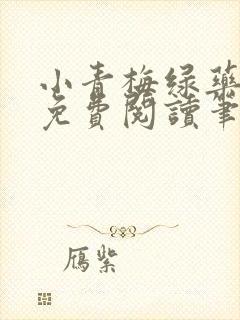 小青梅绿药
免費閱讀筆
鴈紫